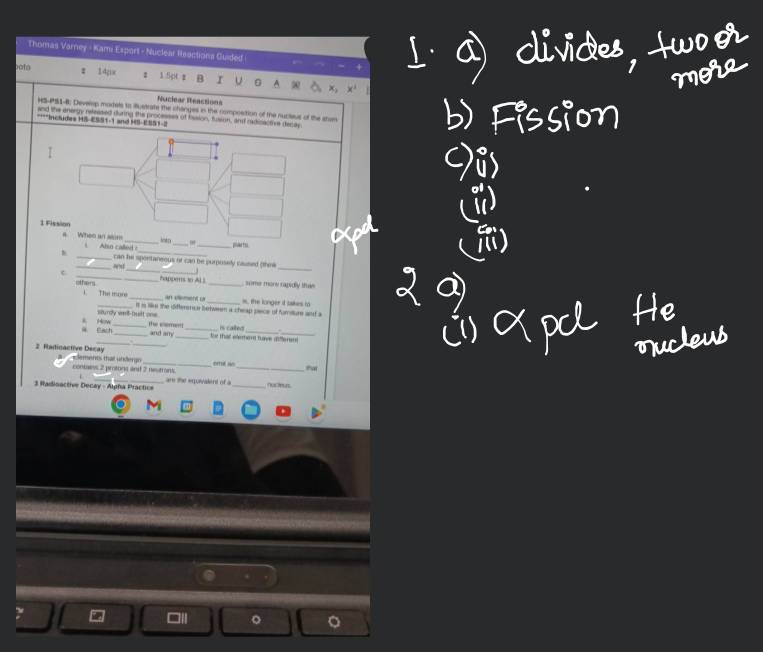 Thomas Varney - Kami Export - Nuclear Reactions Guided
14px 1.5pt B I U
Nuclear Reactions
HS-PS1-8: Develop models to illustrate the changes in the composition of the nucleus of the atom
and the energy released during the processes of fission, fusion, and radioactive decay.
****Includes HS-ESS1-1 and HS-ESS1-2
1 Fission
a. When an atom ______ into ___ or ______ parts.
i. Also called
b. ______ can be spontaneous or can be purposely caused (think ______
______ and ______)
c. ______ happens to ALL ______, some more rapidly than
others.
i. The more ______ an element or ______ is, the longer it takes to
______. It is like the difference between a cheap piece of furniture and a
sturdy well-built one.
ii. How ______ the element ______ is called ______.
iii. Each ______ and any ______ for that element have different
2 Radioactive Decay
elements that undergo ______ emit an ______ that
contains 2 protons and 2 neutrons.
i. ______ are the equivalent of a ______ nucleus.
3 Radioactive Decay - Alpha Practice
αpd
1. a) divides, two or
more
b) Fission
c) i)
(ii)
(iii)
2 a)
(i) α pd He
nucleus